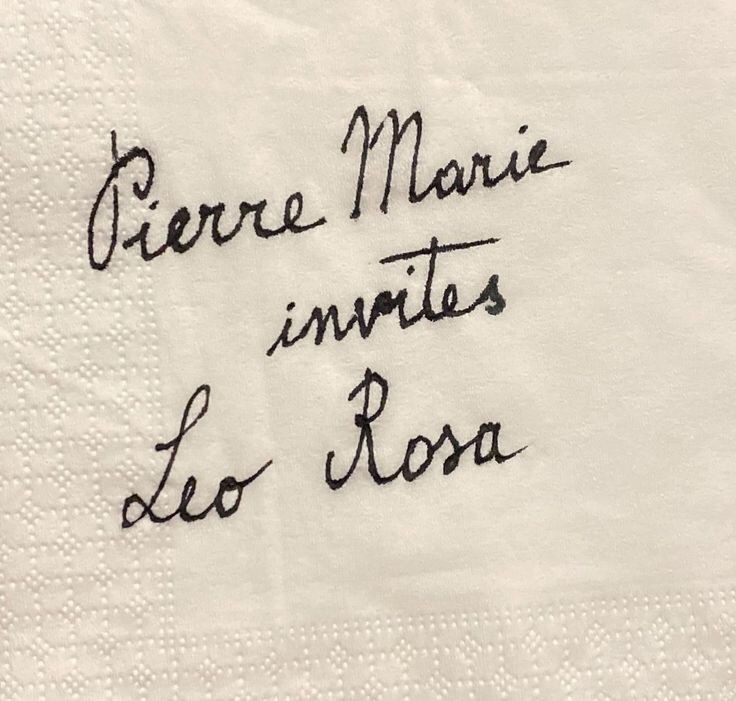 Pierre Marie
invites
Leo Rosa